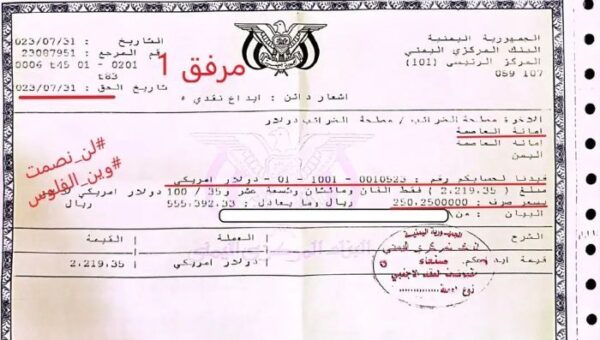 الجمهورية اليمنية
البنك المركزي اليمني
المركز الرئيسي (101)
059 107
التاريخ : 023/07/31
رقم المرجع : 23087951
0006 t45 01 - 0201
t83
تاريخ الحق : 023/07/31
مرفق 1
اشعار دائن : ايداع نقدي
الاخوة مصلحة الضرائب / مصلحة الضرائب دولار
امانة العاصمة
امانة العاصمة
اليمن
#لن_نصمت
#وين_الفلوس
قيدنا لحسابكم رقم : 0010523 - 1001 - 01 - دولار امريكي
مبلغ ( 2,219.35 ) فقط الفان ومائتان وتسعة عشر و 35/ 100 دولار امريكي
بسعر صرف : 250.2500000 ريال وما يعادل : 555,392.33 ريال
البيان : من
الشرح العملة القيمة
قيمة ايداعكم دولار امريكي 2,219.35
الجمهورية اليمنية
البنك المركزي اليمني
صنعاء